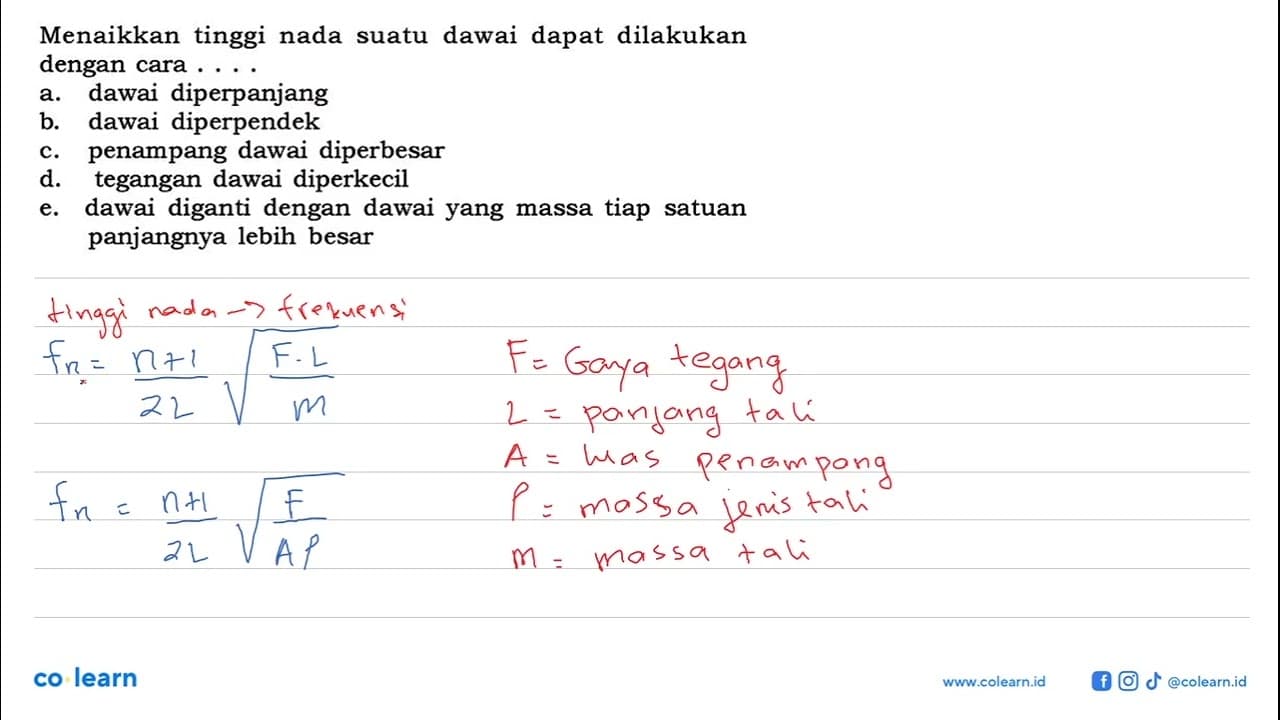 Menaikkan tinggi nada suatu dawai dapat dilakukan
dengan cara . . . .
a. dawai diperpanjang
b. dawai diperpendek
c. penampang dawai diperbesar
d. tegangan dawai diperkecil
e. dawai diganti dengan dawai yang massa tiap satuan
panjangnya lebih besar
tinggi nada → frekuensi
fn = n+1 / 2L √ F.L / m
F = Gaya tegang
L = panjang tali
A = luas penampang
fn = n+1 / 2L √ F / Aρ
ρ = massa jenis tali
m = massa tali
co learn
www.colearn.id
@colearn.id